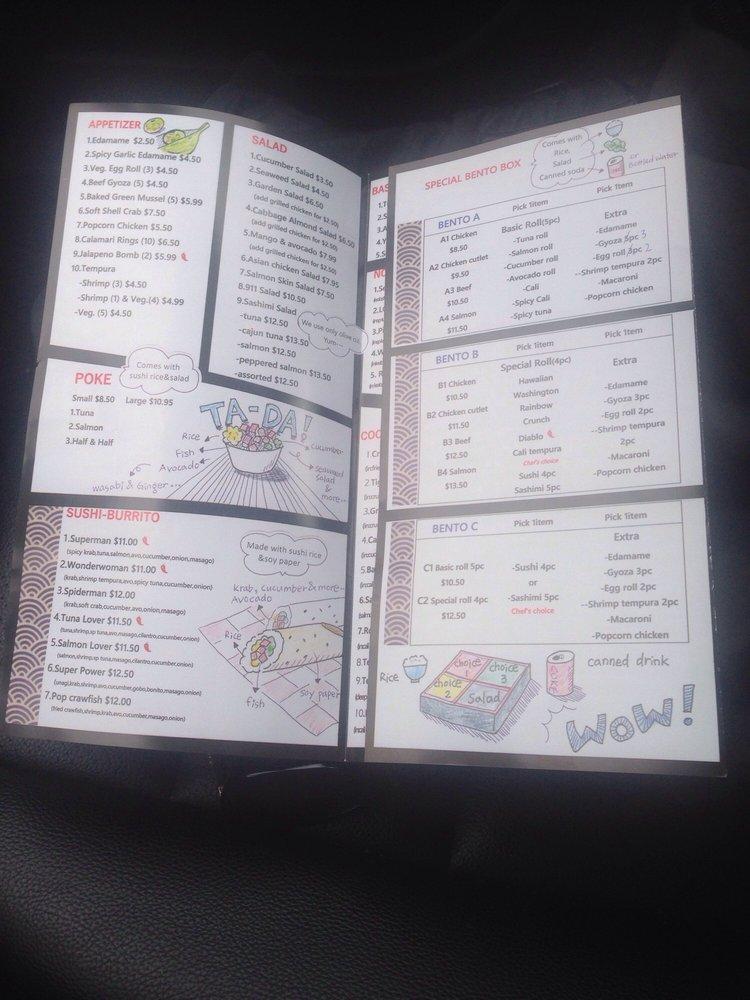 APPETIZER
1.Edamame $2.50
2.Spicy Garlic Edamame $4.50
3.Veg. Egg Roll (3) $4.50
4.Beef Gyoza (5) $4.50
5.Baked Green Mussel (5) $5.99
6.Soft Shell Crab $7.50
7.Popcorn Chicken $5.50
8.Calamari Rings (10) $6.50
9.Jalapeno Bomb (2) $5.99
10.Tempura
-Shrimp (3) $4.50
-Shrimp (1) & Veg.(4) $4.99
-Veg. (5) $4.50
SALAD
1.Cucumber Salad $3.50
2.Seaweed Salad $4.50
3.Garden Salad $6.50
(add grilled chicken for $2.50)
4.Cabbage Almond Salad $6.50
(add grilled chicken for $2.50)
5.Mango & avocado $7.99
(add grilled chicken for $2.50)
6.Asian chicken Salad $7.95
7.Salmon Skin Salad $7.50
8.911 Salad $10.50
9.Sashimi Salad
-tuna $12.50
-cajun tuna $13.50
-salmon $12.50
-peppered salmon $13.50
-assorted $12.50
We use only olive oil.
Yum~~
POKE
Comes with
sushi rice&salad
Small $8.50 Large $10.95
1.Tuna
2.Salmon
3.Half & Half
TA-DA!
Rice
Fish
Avocado
wasabi & Ginger...
cucumber
seaweed
salad
&
more...
SUSHI-BURRITO
1.Superman $11.00
(spicy krab,tuna,salmon,avo,cucumber,onion,masago)
2.Wonderwoman $11.00
(krab,shrimp tempura,avo,spicy tuna,cucumber,onion)
3.Spiderman $12.00
(krab,soft crab,cucumber,avo,onion,masago)
4.Tuna Lover $11.50
(tuna,shrimp,sp tuna,avo,masago,cilantro,cucumber,onion)
5.Salmon Lover $11.50
(salmon,shrimp,sp tuna,masago,cilantro,cucumber,onion)
6.Super Power $12.50
(unagi,krab,shrimp,avo,cucumber,gobo,bonito,masago,onion)
7.Pop crawfish $12.00
(fried crawfish,shrimp,krab,avo,cucumber,masago,onion)
Made with sushi rice
&soy paper
krab, cucumber & more~
Avocado
Rice
fish
soy paper
SPECIAL BENTO BOX
Comes with
Rice,
Salad
Canned soda
or
Bottled Water
BENTO A
Pick 1item
Pick 1item
A1 Chicken
$8.50
A2 Chicken cutlet
$9.50
A3 Beef
$10.50
A4 Salmon
$11.50
Basic Roll(5pc)
-Tuna roll
-Salmon roll
-Cucumber roll
-Avocado roll
-Cali
-Spicy Cali
-Spicy tuna
Extra
-Edamame
-Gyoza 5pc 3
-Egg roll 3pc 2
--Shrimp tempura 2pc
-Macaroni
-Popcorn chicken
BENTO B
Pick 1item
Pick 1item
B1 Chicken
$10.50
B2 Chicken cutlet
$11.50
B3 Beef
$12.50
B4 Salmon
$13.50
Special Roll(4pc)
Hawaiian
Washington
Rainbow
Crunch
Diablo
Cali tempura
Chef's choice
Sushi 4pc
Sashimi 5pc
Extra
-Edamame
-Gyoza 3pc
-Egg roll 2pc
--Shrimp tempura
2pc
-Macaroni
-Popcorn chicken
BENTO C
Pick 1item
Pick 1item
C1 Basic roll 5pc
$10.50
C2 Special roll 4pc
$12.50
-Sushi 4pc
or
-Sashimi 5pc
Chef's choice
Extra
-Edamame
-Gyoza 3pc
-Egg roll 2pc
--Shrimp tempura 2pc
-Macaroni
-Popcorn chicken
Rice
choice
1
choice
2
choice
3
Salad
COKE
canned drink
WOW!